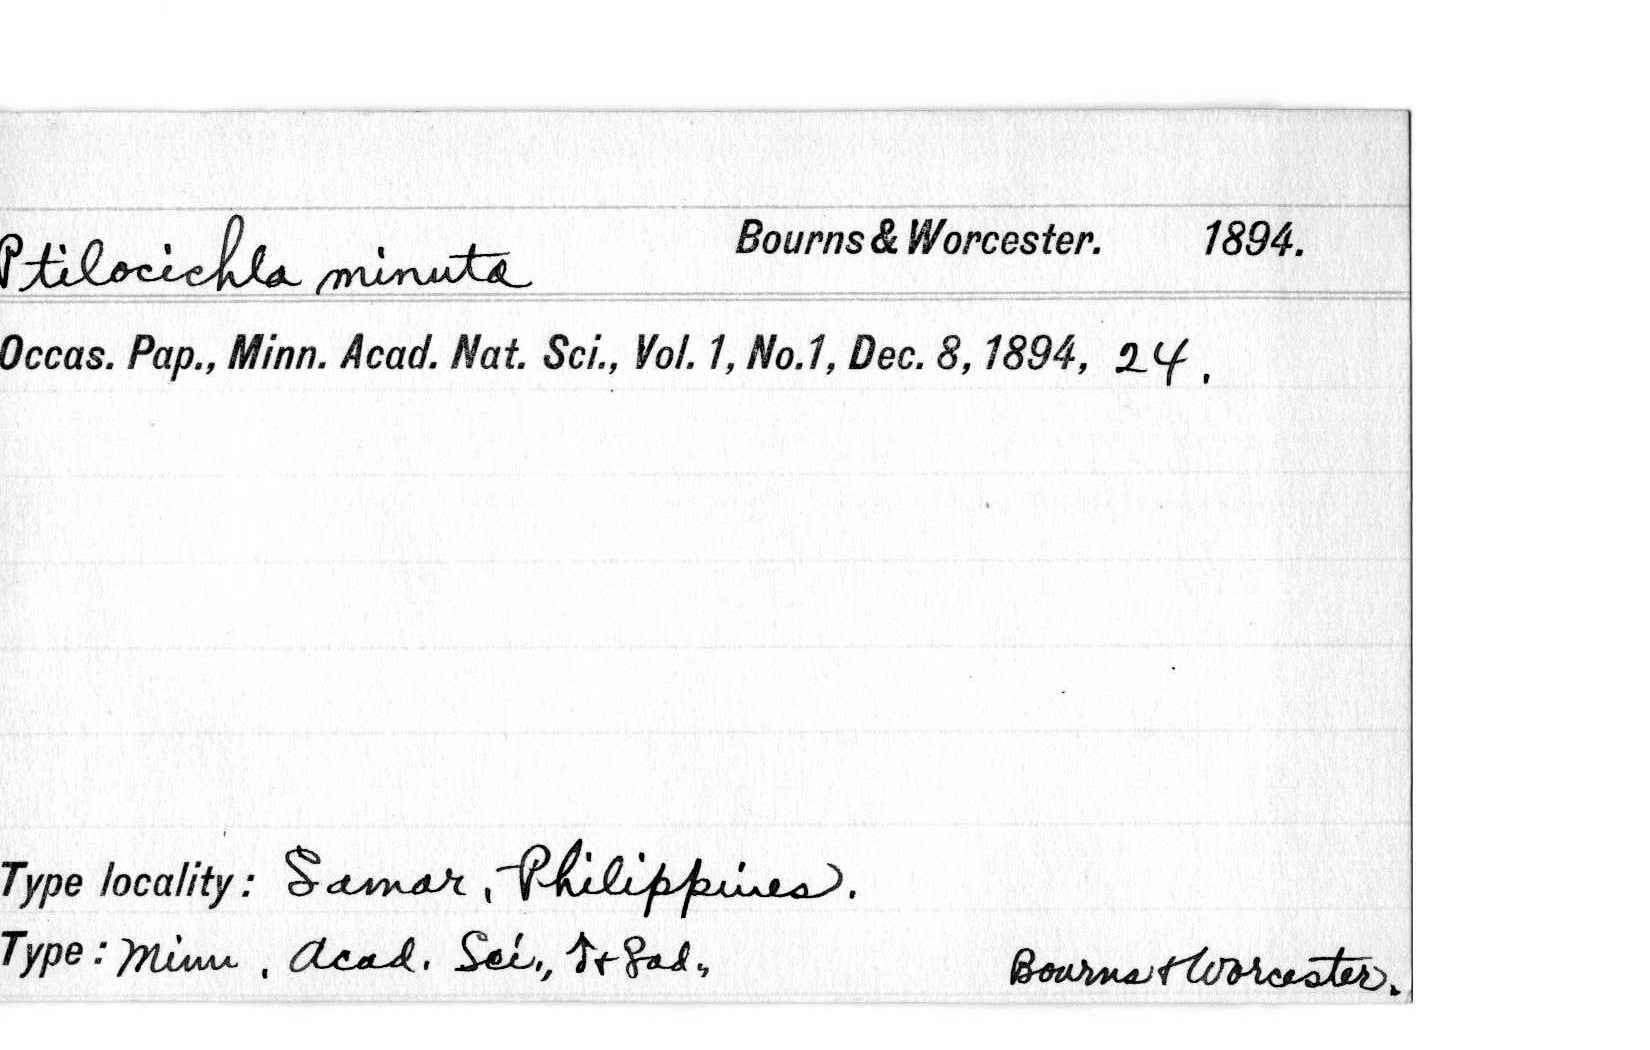 Ptilocichla minuta Bourns & Worcester. 1894.
Occas. Pap., Minn. Acad. Nat. Sci., Vol. 1, No.1, Dec. 8, 1894, 24.
Type locality: Samar, Philippines.
Type: Minn. Acad. Sci., ♂+♀ad., Bourns & Worcester.